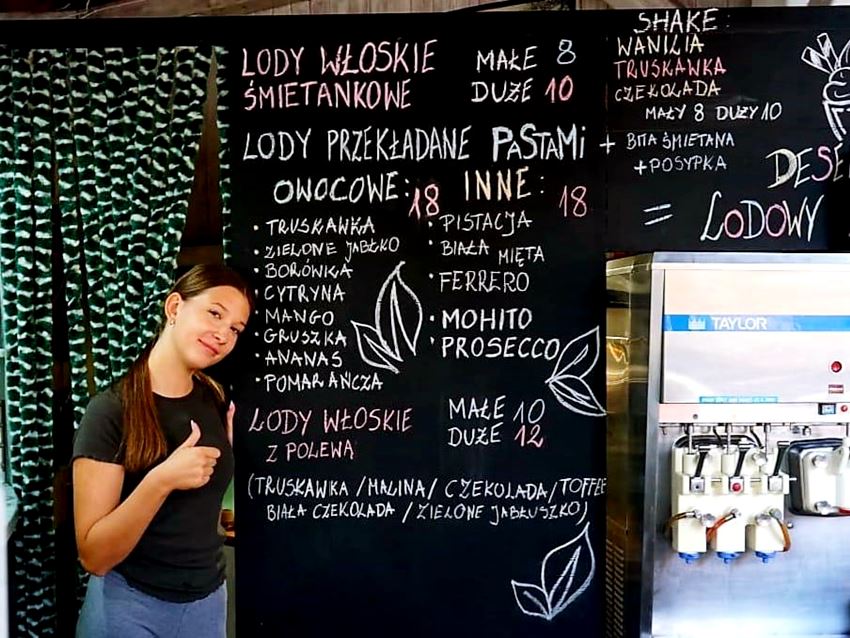 LODY WŁOSKIE MAŁE 8
ŚMIETANKOWE DUŻE 10
LODY PRZEKŁADANE PASTAMI
OWOCOWE: 18 INNE: 18
• TRUSKAWKA
• ZIELONE JABŁKO
• BORÓWKA
• CYTRYNA
• MANGO
• GRUSZKA
• ANANAS
• POMARAŃCZA
• PISTACJA
• BIAŁA MIĘTA
• FERRERO
• MOHITO
• PROSECCO
LODY WŁOSKIE MAŁE 10
Z POLEWĄ DUŻE 12
(TRUSKAWKA / MALINA / CZEKOLADA / TOFFE
BIAŁA CZEKOLADA / ZIELONE JABŁUSZKO)
SHAKE:
WANILIA
TRUSKAWKA
CZEKOLADA
MAŁY 8 DUŻY 10
+ BITA ŚMIETANA
+ POSYPKA
= LODOWY
TAYLOR